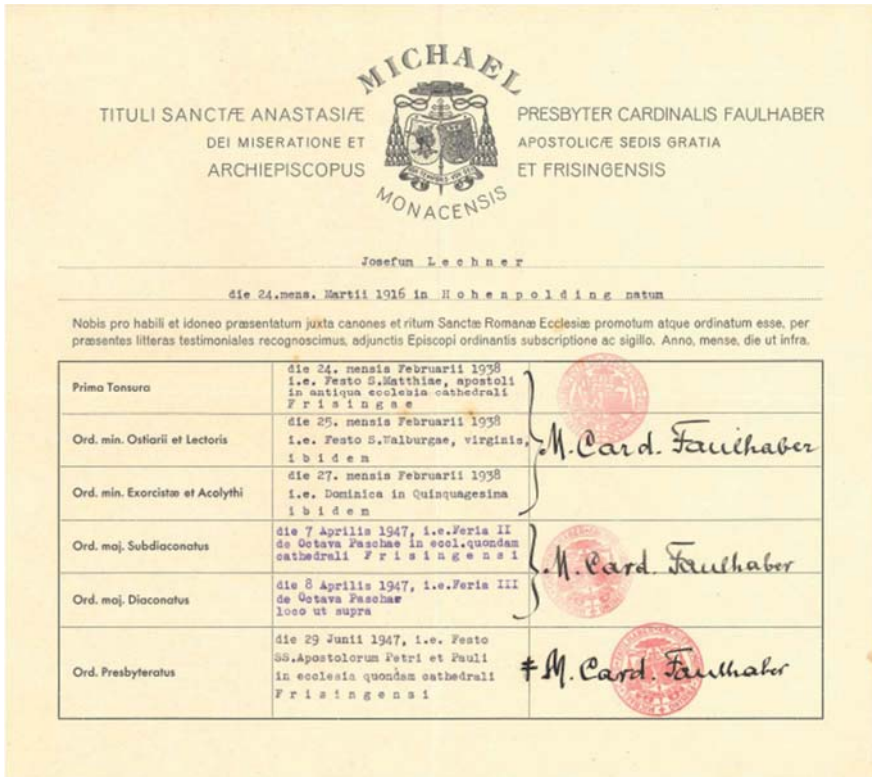 MICHAEL
TITULI SANCTÆ ANASTASIÆ PRESBYTER CARDINALIS FAULHABER
DEI MISERATIONE ET APOSTOLICÆ SEDIS GRATIA
ARCHIEPISCOPUS ET FRISINGENSIS
MONACENSIS
Josefum L e c h n e r
die 24.mens. Martii 1916 in H o h e n p o l d i n g natum
Nobis pro habili et idoneo præsentatum juxta canones et ritum Sanctæ Romanæ Ecclesiæ promotum atque ordinatum esse, per
præsentes litteras testimoniales recognoscimus, adjunctis Episcopi ordinantis subscriptione ac sigillo. Anno, mense, die ut infra.
Prima Tonsura
die 24. mensis Februarii 1938
i.e. Festo S.Matthiae, apostoli
in antiqua ecclesia cathedrali
F r i s i n g a e
Ord. min. Ostiarii et Lectoris
die 25. mensis Februarii 1938
i.e. Festo S.Walburgae, virginis,
i b i d e m
M. Card. Faulhaber
Ord. min. Exorcistæ et Acolythi
die 27. mensis Februarii 1938
i.e. Dominica in Quinquagesima
i b i d e m
Ord. maj. Subdiaconatus
die 7 Aprilis 1947, i.e.Feria II
de Octava Paschae in eccl.quondam
cathedrali F r i s i n g e n s i
M. Card. Faulhaber
Ord. maj. Diaconatus
die 8 Aprilis 1947, i.e.Feria III
de Octava Paschae
loco ut supra
Ord. Presbyteratus
die 29 Junii 1947, i.e. Festo
SS.Apostolorum Petri et Pauli
in ecclesia quondam cathedrali
F r i s i n g e n s i
‡ M. Card. Faulhaber